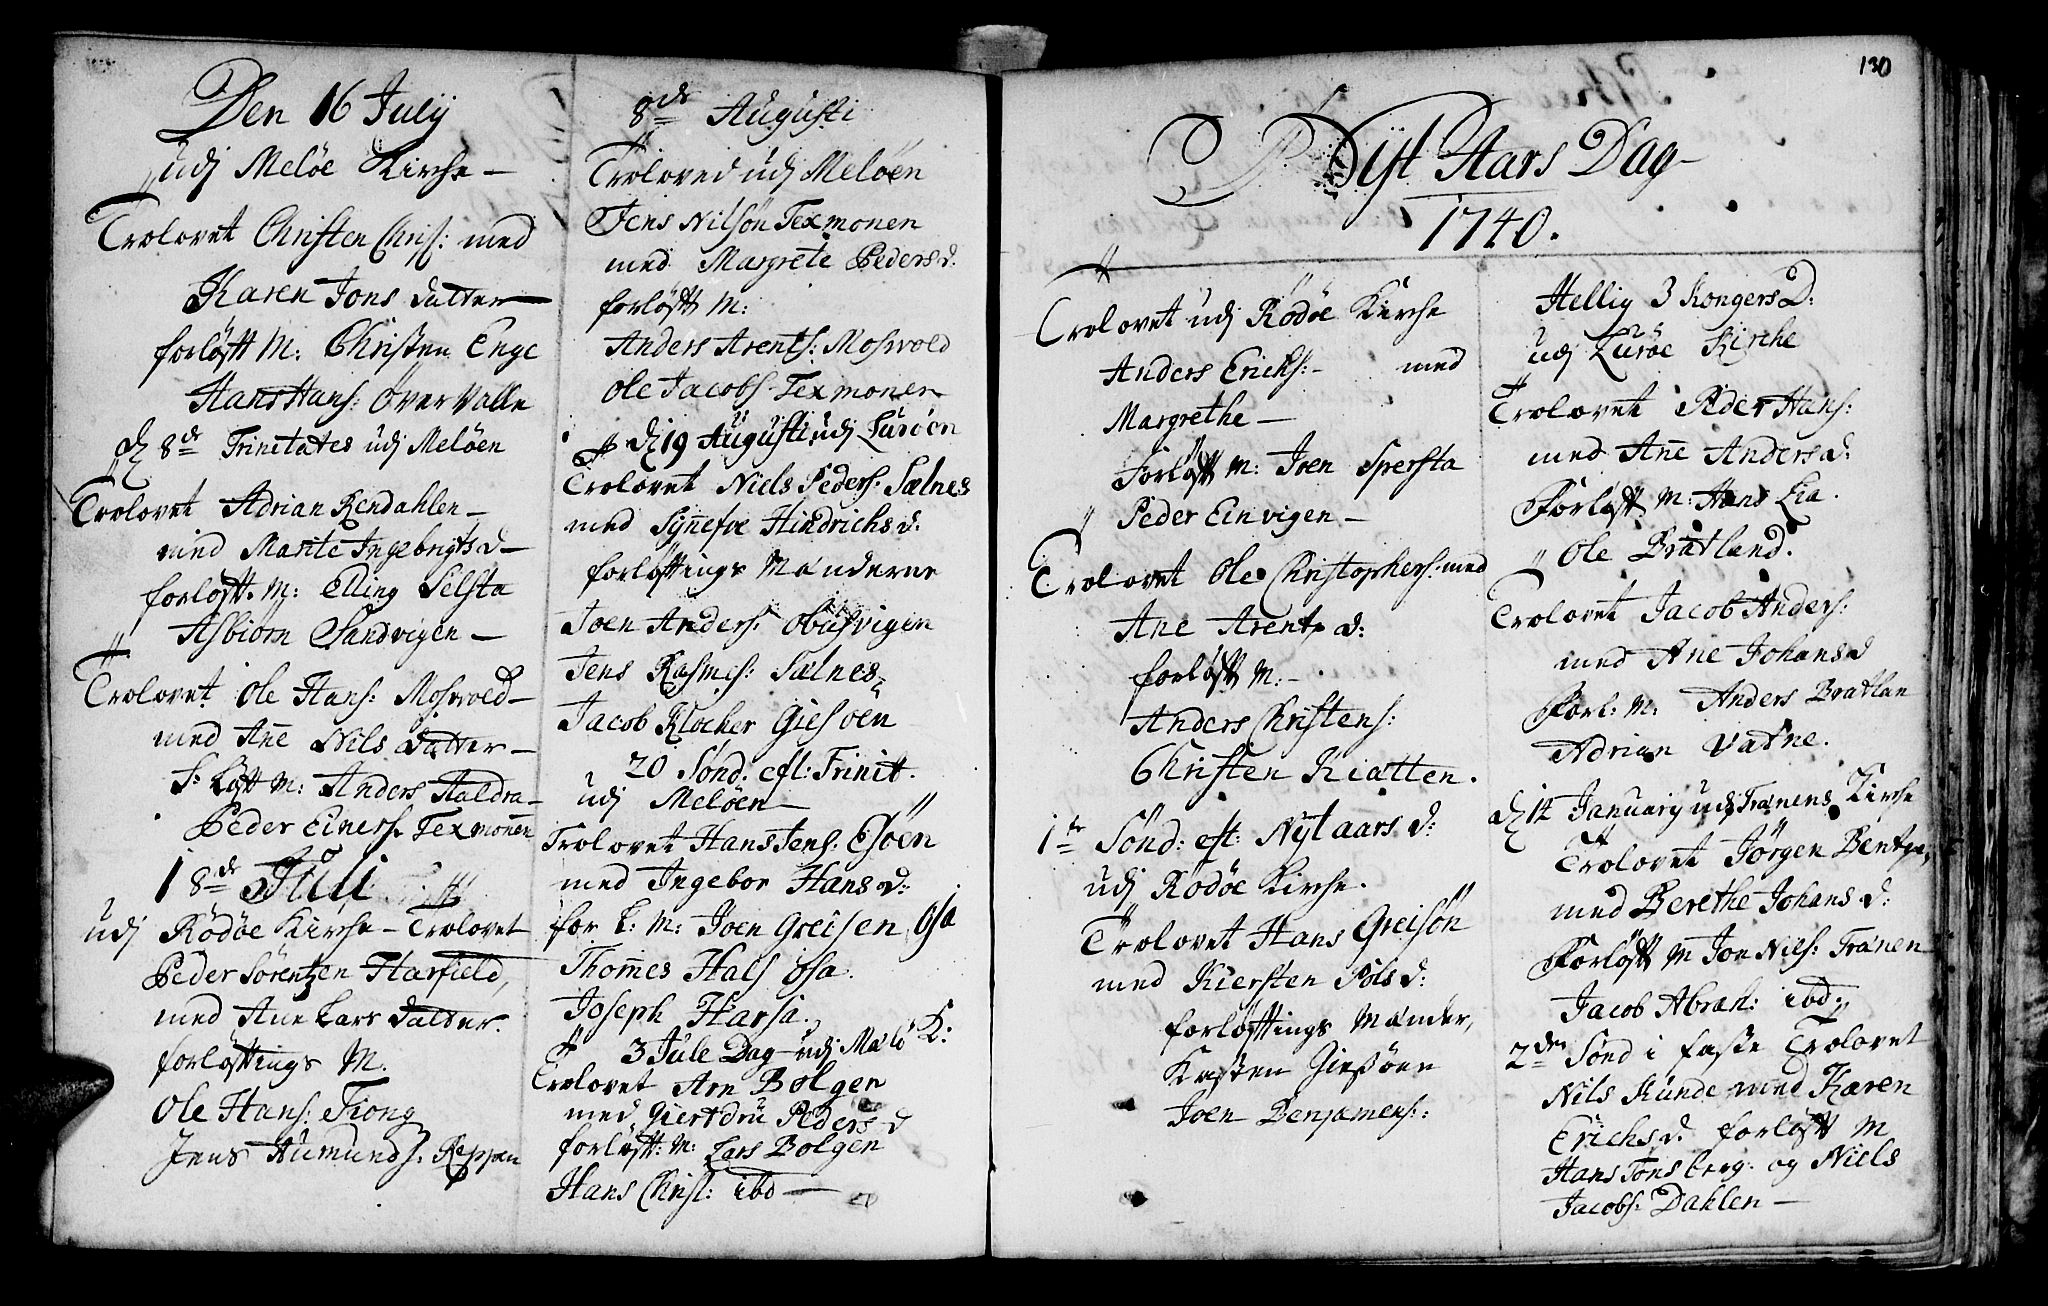 Den 16 Julij
udj Meløe Kirche –
Trolovet Christen Chris: med
Karen Jons datter
forløftt M: Christen Enge
Hans Hans: Øver Valle
d 8de Trinitates udj Meløen
Trolovet Adrian Rendahlen –
med Marite Ingebrigts d –
forløft. M: Elling Selsta
Asbiørn Sandvigen –
Trolovet Ole Hans: Moswold –
med Añe Nils datter –
F: løftt M: Anders Aaldra –
Peder Einers: Texmonen
18de Juli
udj Rødøe Kirche – Trolovet
Peder Sørentzen Harfield,
med Ane Lars datter.
forløftings M.
Ole Hans: Tiong
Jens Aumunds: Reppen
8de Augusti
Troloved udj Meløen
Jens Nilsøn Texmonen
med Margrete Peders d.
forløftt M:
Anders Arents: Moswold
Ole Jacobs Texmonen
d 19 Augusti udj Lurøen
Trolovet Niels Peders: Sælnes
med Syñefve Hindrichs d.
forløftings Mænderne
Joen Anders: Obusvigen
Jens Rasmes: Sælnes
Jacob Klocher Giesøen
20 Sønd. eft: Trinit.
udj Meløen –
Trolovet Hans Jens: Esøen
med Ingebor Hans d:
for l: M: Joen Greisen Osa
Thom̃es Hals Osa.
Joseph Harsa.
3 Jule Dag udj Meløe K:
Trolovet Arn Bolgen
med Giertdru Peders d
forløftt: M: Lars Bolgen
Hans Chris: ibd –
130
Nyt Aars Dag
1740.
Trolovet udj Rødøe Kirche
Anders Erichs: – med
Margrethe –
Forløftt M: Joen Spersta
Peder Einvigen –
Trolovet Ole Christophers: med
Ane Arents d:
forløftt M: –
Anders Christens:
Christen Kiatten.
1te Sønd: eft: Nyt aars d:
udj Rødøe Kirche.
Trolovet Hans Greisøn
med Kiersten Pols d:
forløftings Mænder,
Kasten Giesøen
Joen Benjamens:
Hellig 3 Kongers D:
udj Lurøe Kirche
Trolovet Peder Hans:
med Añe Anders d:
Forløftt. M: Hans Lia.
Ole Bratland.
Trolovet Jacob Anders:
med Ane Johans d
Forl: M: Anders Bratlan
Adrian Vatne.
d 14 January udj Trænens Kirche
Trolovet Jørgen Bents:
med Berethe Johans d:
Forløftt M Jon Nils: Trænen
Jacob Abrah: ibd:
2den Sønd i faste Trolovet
Nils Runde med Karen
Erichs d. forløftt M
Hans Tonsberg. og Niels
Jacobs: Dahlen –